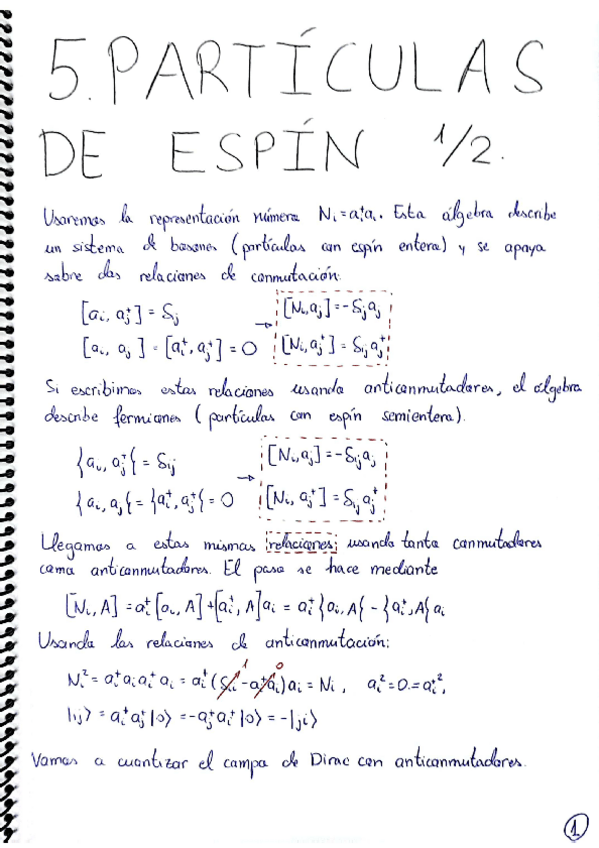 5. PARTÍCULAS
DE ESPÍN 1/2.
Usaremos la representación número Nᵢ=aᵢ⁺aᵢ. Esta álgebra describe
un sistema de bosones (partículas con espín entero) y se apoya
sobre dos relaciones de conmutación:
[aᵢ, aⱼ⁺] = δᵢⱼ → [Nᵢ, aⱼ] = -δᵢⱼ aⱼ
[aᵢ, aⱼ] = [aᵢ⁺, aⱼ⁺] = 0 [Nᵢ, aⱼ⁺] = δᵢⱼ aⱼ⁺
Si escribimos estas relaciones usando anticonmutadores, el álgebra
describe fermiones (partículas con espín semientero).
{aᵢ, aⱼ⁺} = δᵢⱼ → [Nᵢ, aⱼ] = -δᵢⱼ aⱼ
{aᵢ, aⱼ} = {aᵢ⁺, aⱼ⁺} = 0 [Nᵢ, aⱼ⁺] = δᵢⱼ aⱼ⁺
Llegamos a estas mismas relaciones usando tanto conmutadores
como anticonmutadores. El paso se hace mediante
[Nᵢ, A] = aᵢ⁺[aᵢ, A] + [aᵢ⁺, A]aᵢ = aᵢ⁺{aᵢ, A} - {aᵢ⁺, A}aᵢ
Usando las relaciones de anticonmutación:
Nᵢ² = aᵢ⁺aᵢaᵢ⁺aᵢ = aᵢ⁺(δᵢᵢ - aᵢ⁺aᵢ)aᵢ = Nᵢ, aᵢ² = 0 = aᵢ⁺²,
|ij⟩ = aᵢ⁺aⱼ⁺|0⟩ = -aⱼ⁺aᵢ⁺|0⟩ = -|ji⟩
Vamos a cuantizar el campo de Dirac con anticonmutadores.
1